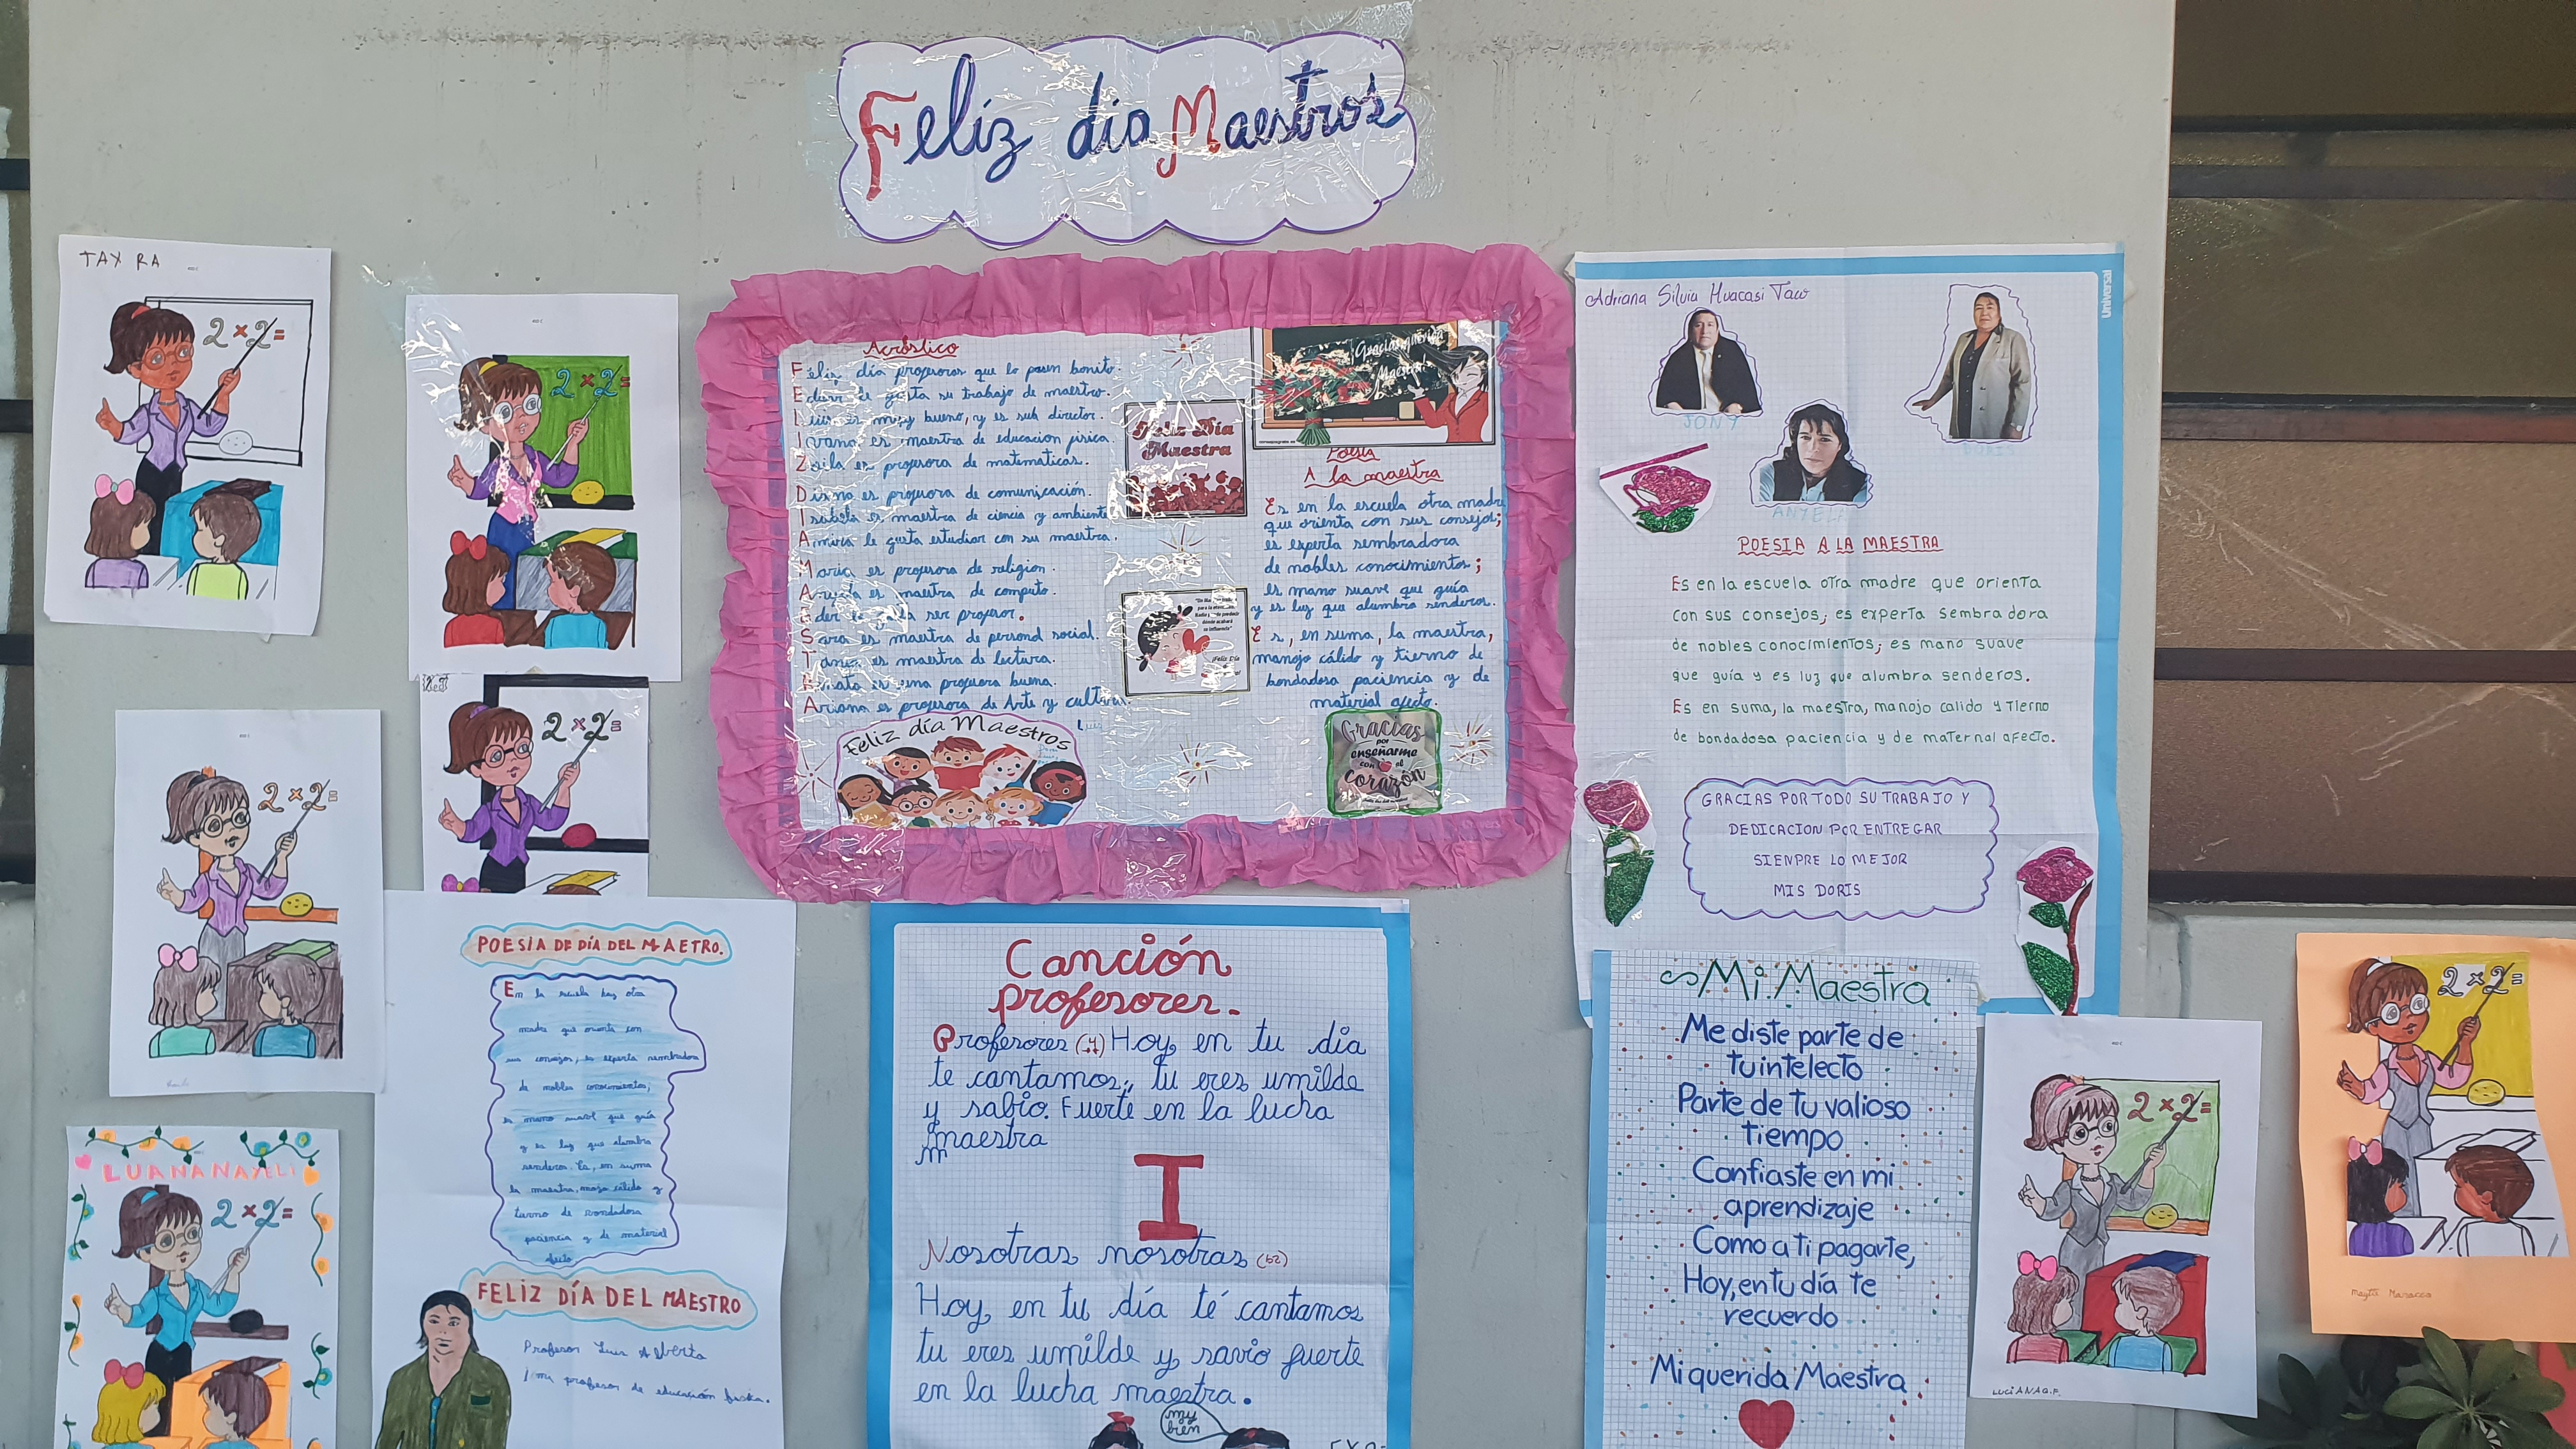 Feliz día Maestros
TAX RA
2 × 2 =
2 × 2 =
2 × 2 =
2 × 2 =
LUANA NAYELI
2 × 2 =
Acróstico
Feliz día profesores que lo pasen bonito.
Eduar le gusta su trabajo de maestro.
Luis es muy bueno, y es sub director.
Ivana es maestra de educacion fisica.
Zoila es profesora de matematicas.
Diana es profesora de comunicación.
es maestra de ciencia y ambiente
Amira le gusta estudiar con su maestra.
Maria es profesora de religion.
es maestra de computo.
Eder le gusta ser profesor.
Sara es maestra de persond social.
Tania es maestra de lectura.
es una profesora buena.
Ariana es profesora de Arte y cultura.
Luis
Feliz día Maestros
Feliz Día
Maestra
¡Feliz Día
Gracias
Maestra
Poesia
A la maestra
Es en la escuela otra madre
que orienta con sus consejos;
es experta sembradora
de nobles conocimientos;
es mano suave que guía
y es luz que alumbra senderos.
Es, en suma, la maestra,
manojo cálido y tierno de
bondadosa paciencia y de
material afecto.
Gracias
por
enseñarme
con el
corazón
Universal
Adriana Silvia Huacasi Taco
JONY
DORIS
POESIA A LA MAESTRA
Es en la escuela otra madre que orienta
con sus consejos; es experta sembradora
de nobles conocimientos; es mano suave
que guía y es luz que alumbra senderos.
Es en suma, la maestra, manojo calido y tierno
de bondadosa paciencia y de maternal afecto.
GRACIAS POR TODO SU TRABAJO Y
DEDICACION POR ENTREGAR
SIENPRE LO MEJOR
MIS DORIS
POESIA DE DÍA DEL MAETRO.
En la escuela hay otra
madre que orienta con
sus consejos, es experta sembradora
de nobles conocimientos,
es mano suave que guía
y es luz que alumbra
senderos. Es, en suma
la maestra, manojo calido y
tierno de bondadosa
paciencia y de material
afecto
FELIZ DÍA DEL MAESTRO
Profesor Luis Alberto
mi profesor de educación fisica.
Canción
profesores.
Profesores Hoy en tu día
te cantamos, tu eres umilde
y sabio. Fuerte en la lucha
maestra
I
Nosotras nosotras (b2)
Hoy en tu día té cantamos
tu eres umilde y savio fuerte
en la lucha maestra.
my
bien
Mi Maestra
Me diste parte de
tu intelecto
Parte de tu valioso
tiempo
Confiaste en mi
aprendizaje
Como a ti pagarte,
Hoy, en tu día te
recuerdo
Mi querida Maestra
2 × 2 =
LUCIANA Q.F.
2 × 2 =